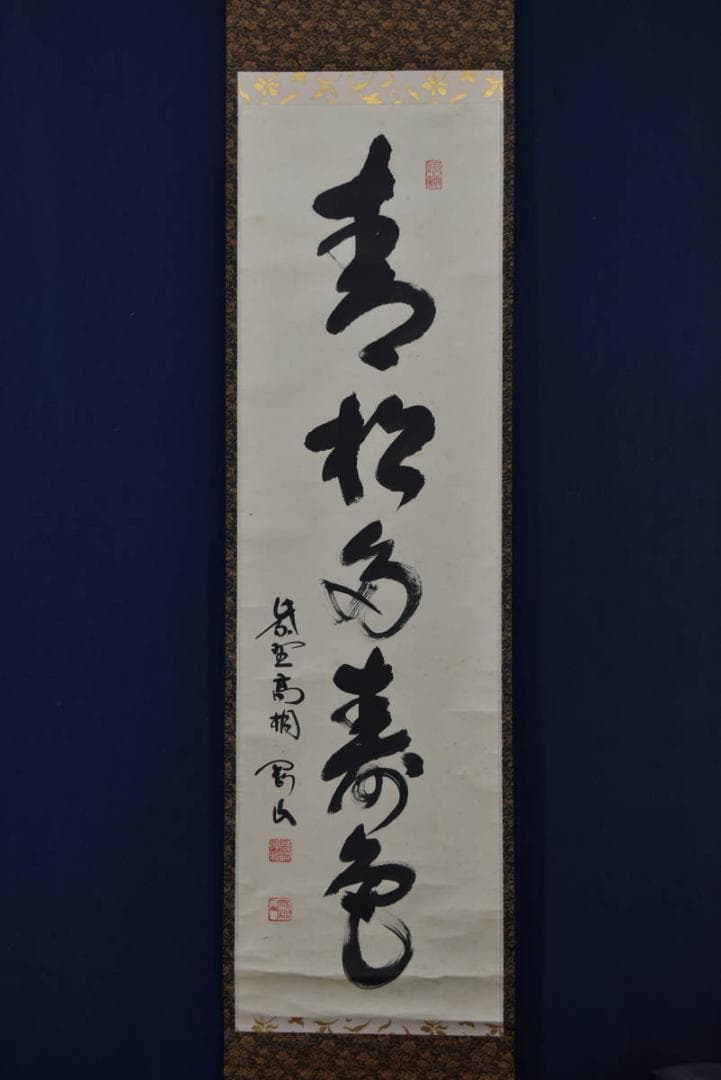 青松多寿色
紫野高桐 剛山